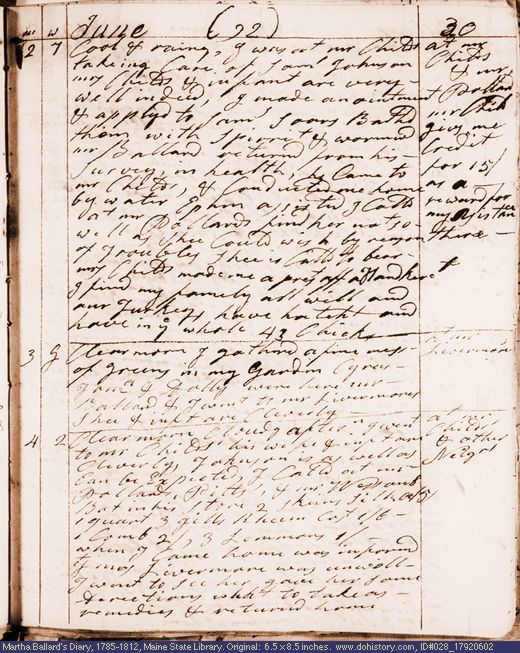 m w June (22) 30
2 7 Cool & rainy, I was at mr Chils at mr
taking Care of Sam Johnson Chils
mrs Chils & infant are very & mr
well indeed, I made an ointment Pollard
& applyd to Sams Soars Bathd mr Chils
them with Spirrit & wormwd give me
mr Ballard returnd from his Credit
Survey in health, he Came to for 15/
mr Chils, & Conducted me home as a
by water Ephm assistd I Calld reward for
at mr Pollards find her not so my assistan
well as Shee Could wish by reason there
of Troubles Shee is Calld to bear
mrs Chils made me a prest of
I find my family all well and
our Turkeys have hatcht and
have in ye whole 43 Chicks
3 G Clear morn I gathered a fine mess at mr
of greens in my Gardin Livermore
& Dolly were here mr
Ballard & I went to mr Livermores
Shee & infant are Cleverly
4 2 Clear morn I went at mr
to mr Chils his wife & infant Chils
Cleverly, Johnson is as well as & other
Can be Expected, I Calld at mr Neigrs
Pollards, Pitts, & mr
Bot in his Store 2 skain silk a/5
1 quart 3 gills Rheum Cost 1/6
1 Comb 2/, 3 Lemmons 1/
when I Came home was informd
yt mrs Livermore was unwell
I went to see her gave her some
Directions what to take as
remedies & returnd home
Martha Ballard's Diary, 1785-1812, Maine State Library. Original: 6.5 x 8.5 inches. www.dohistory.com, ID#028_17920602